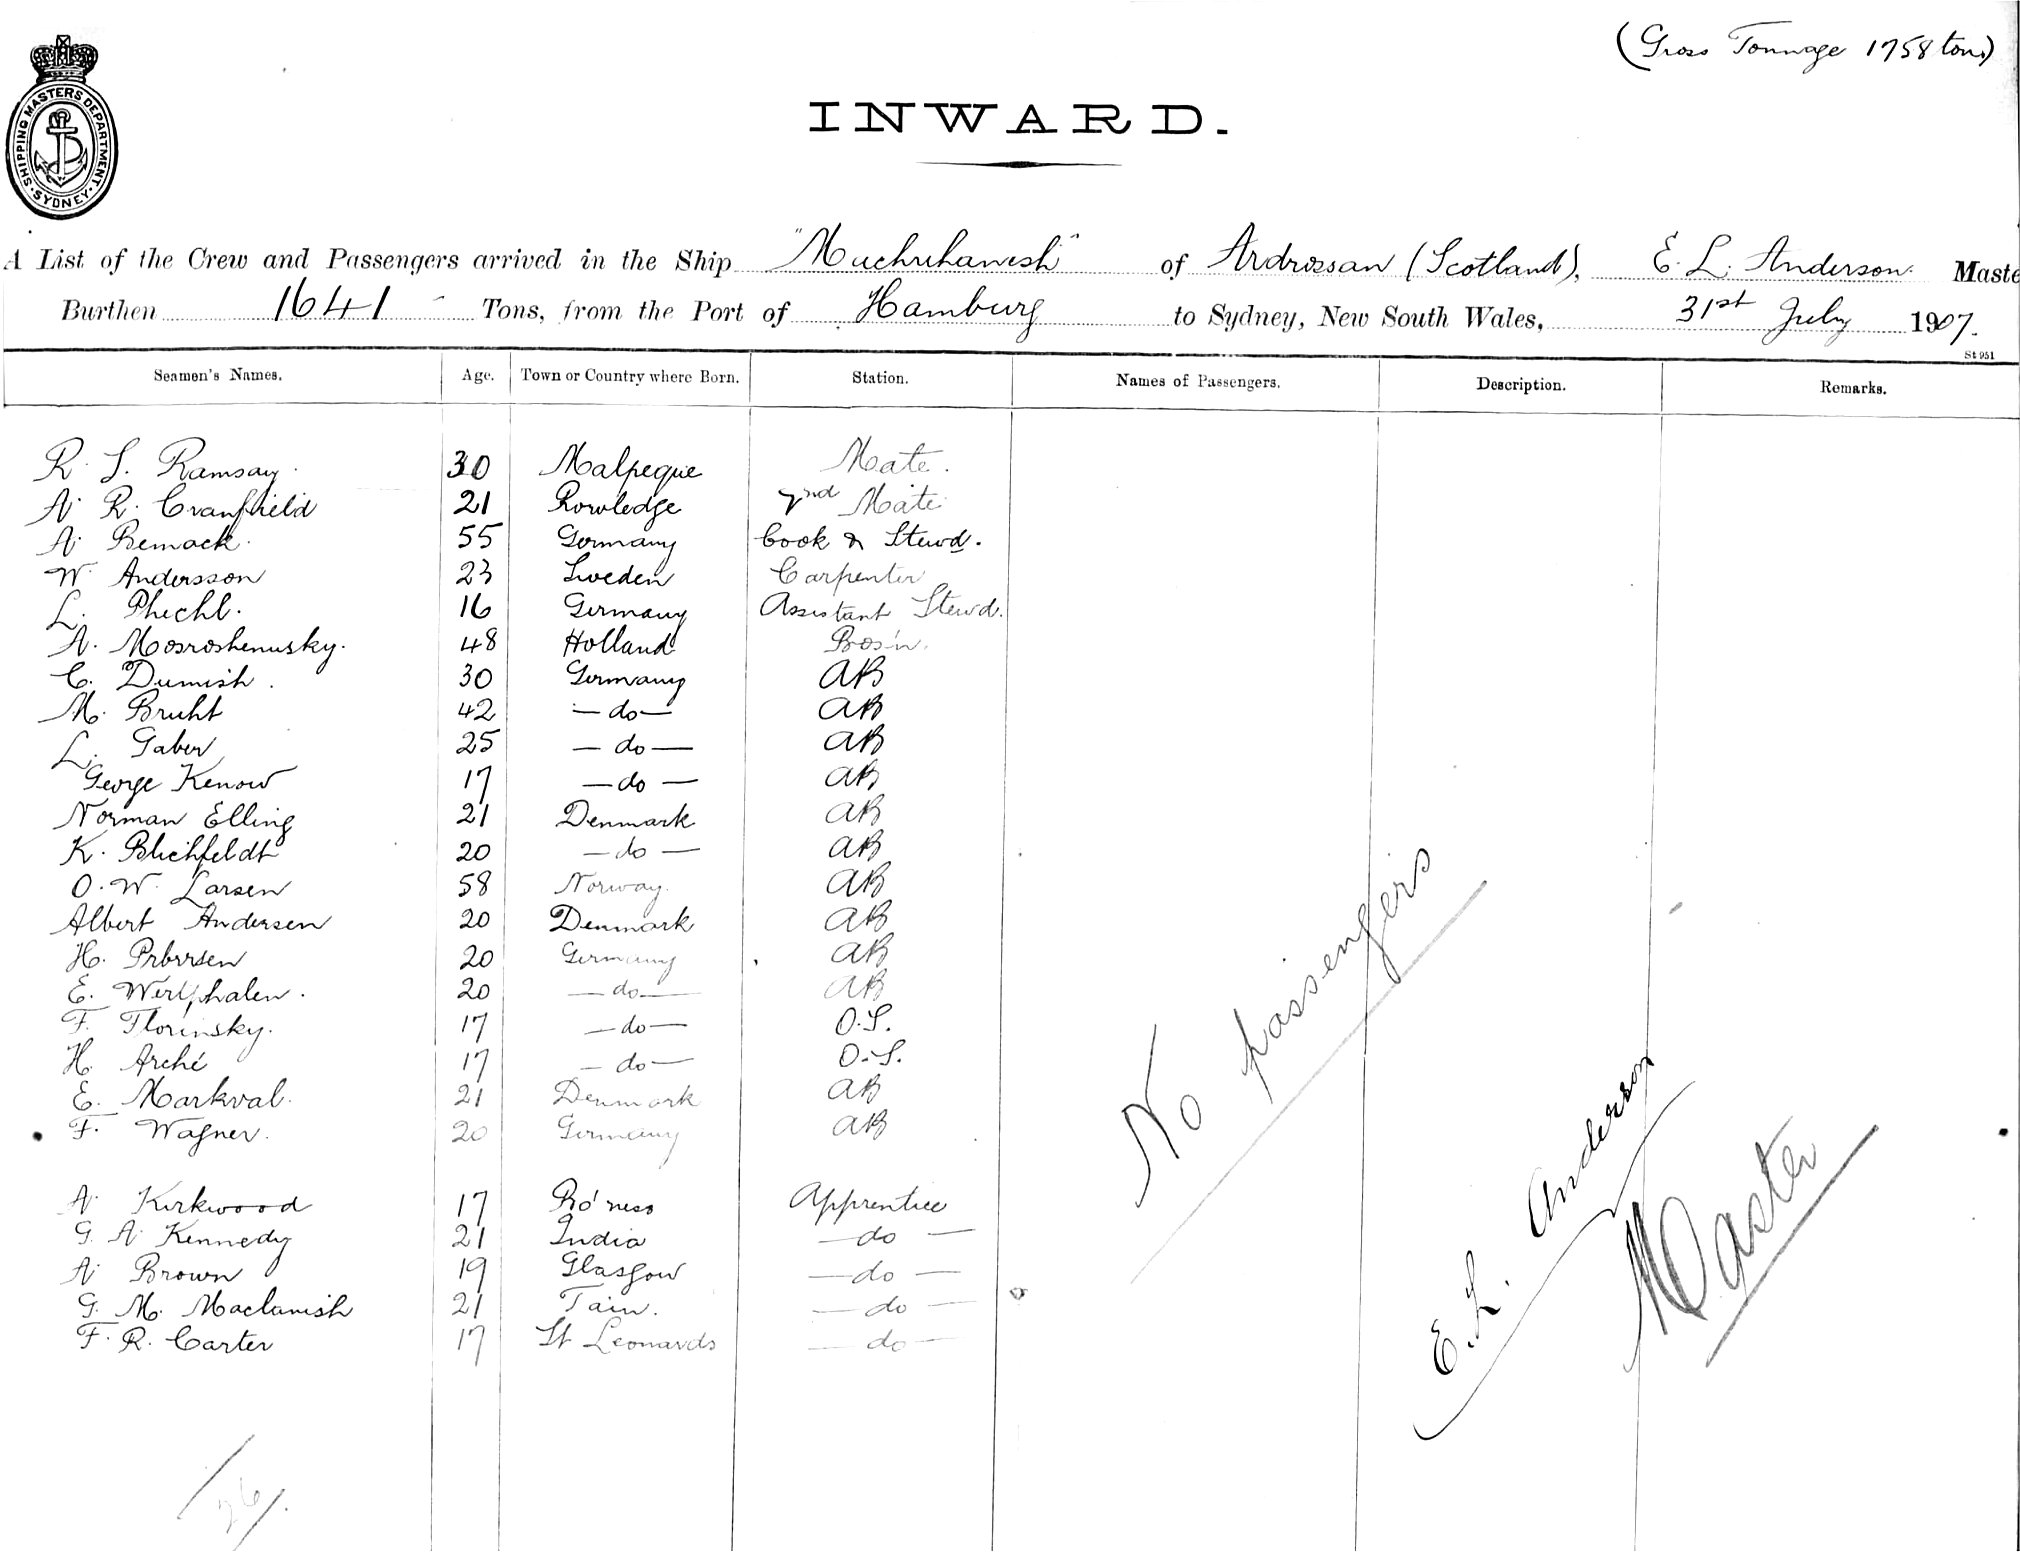 (Gross Tonnage 1758 tons)
SHIPPING MASTERS DEPARTMENT. SYDNEY.
INWARD.
A List of the Crew and Passengers arrived in the Ship "Machrihanish" of Ardrossan (Scotland), E. L. Anderson Maste
Burthen 1641 Tons, from the Port of Hamburg to Sydney, New South Wales, 31st July 1907.
St 951
Seamen's Names. Age. Town or Country where Born. Station. Names of Passengers. Description. Remarks.
R. S. Ramsay 30 Malpeque Mate.
A. R. Cranfield 21 Rowledge 2nd Mate
A. Bemack. 55 Germany Cook & Stewd.
W. Andersson 23 Sweden Carpenter
L. 16 Germany Assistant Stewd.
A. 48 Holland Bos'n.
C. Dumish. 30 Germany AB
M. Bruht 42 — do — AB
L. Gaber 25 — do — AB
George Kenow 17 — do — AB
Norman Elling 21 Denmark AB
K. Blichfeldt 20 — do — AB
O. W. Larsen 58 Norway. AB
Albert Andersen 20 Denmark AB
H. 20 Germany AB
E. Westphalen. 20 — do — AB
F. Florinsky. 17 — do — O.S.
H. Arché 17 — do — O.S.
E. Markval. 21 Denmark AB
F. Wagner. 20 Germany AB
A. Kirkwood 17 Bo'ness Apprentice
G. A. Kennedy 21 India — do —
A. Brown 19 Glasgow — do —
G. M. Maclanish 21 Tain. — do —
F. R. Carter 17 St Leonards — do —
No passengers
E. L. Anderson
Master
26/.